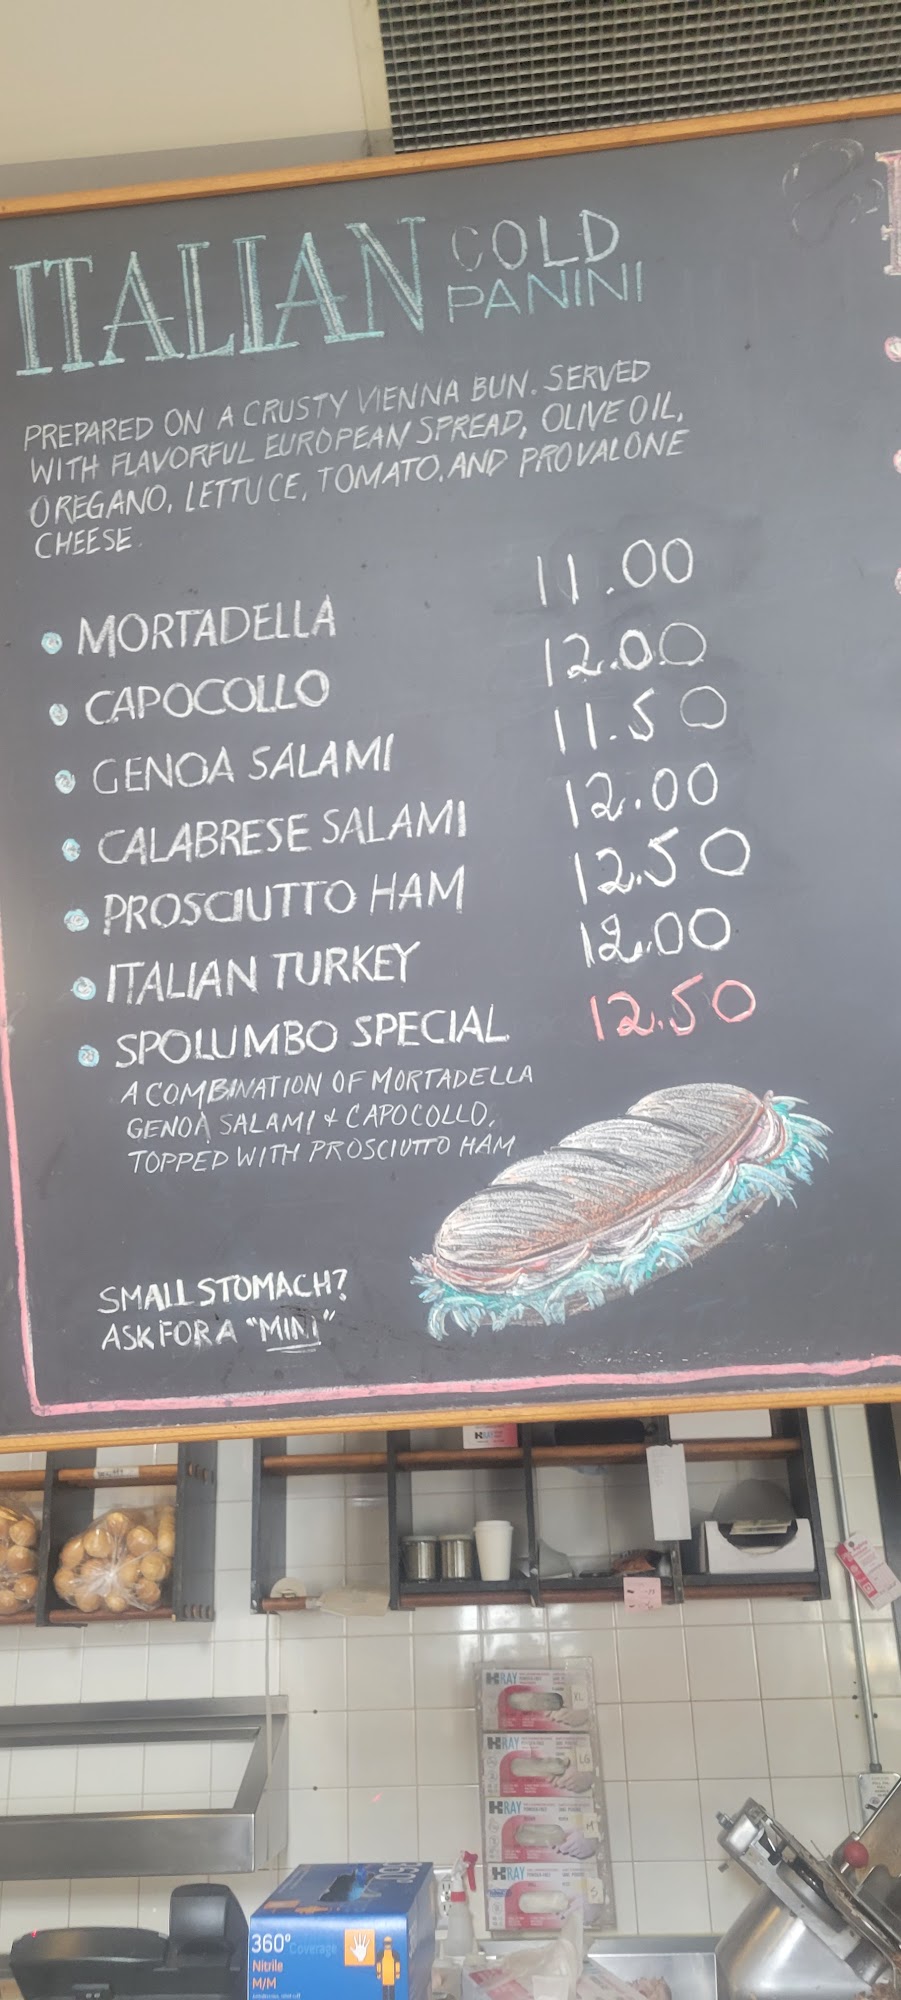 ITALIAN COLD PANINI
PREPARED ON A CRUSTY VIENNA BUN. SERVED
WITH FLAVORFUL EUROPEAN SPREAD, OLIVE OIL,
OREGANO, LETTUCE, TOMATO, AND PROVALONE
CHEESE.
MORTADELLA 11.00
CAPOCOLLO 12.00
GENOA SALAMI 11.50
CALABRESE SALAMI 12.00
PROSCIUTTO HAM 12.50
ITALIAN TURKEY 12.00
SPOLUMBO SPECIAL 12.50
A COMBINATION OF MORTADELLA
GENOA SALAMI & CAPOCOLLO,
TOPPED WITH PROSCIUTTO HAM
SMALL STOMACH?
ASK FOR A "MINI"
RAY
XL
RAY
LG
RAY
M
RAY
S
360°
360° Coverage
Nitrile
M/M